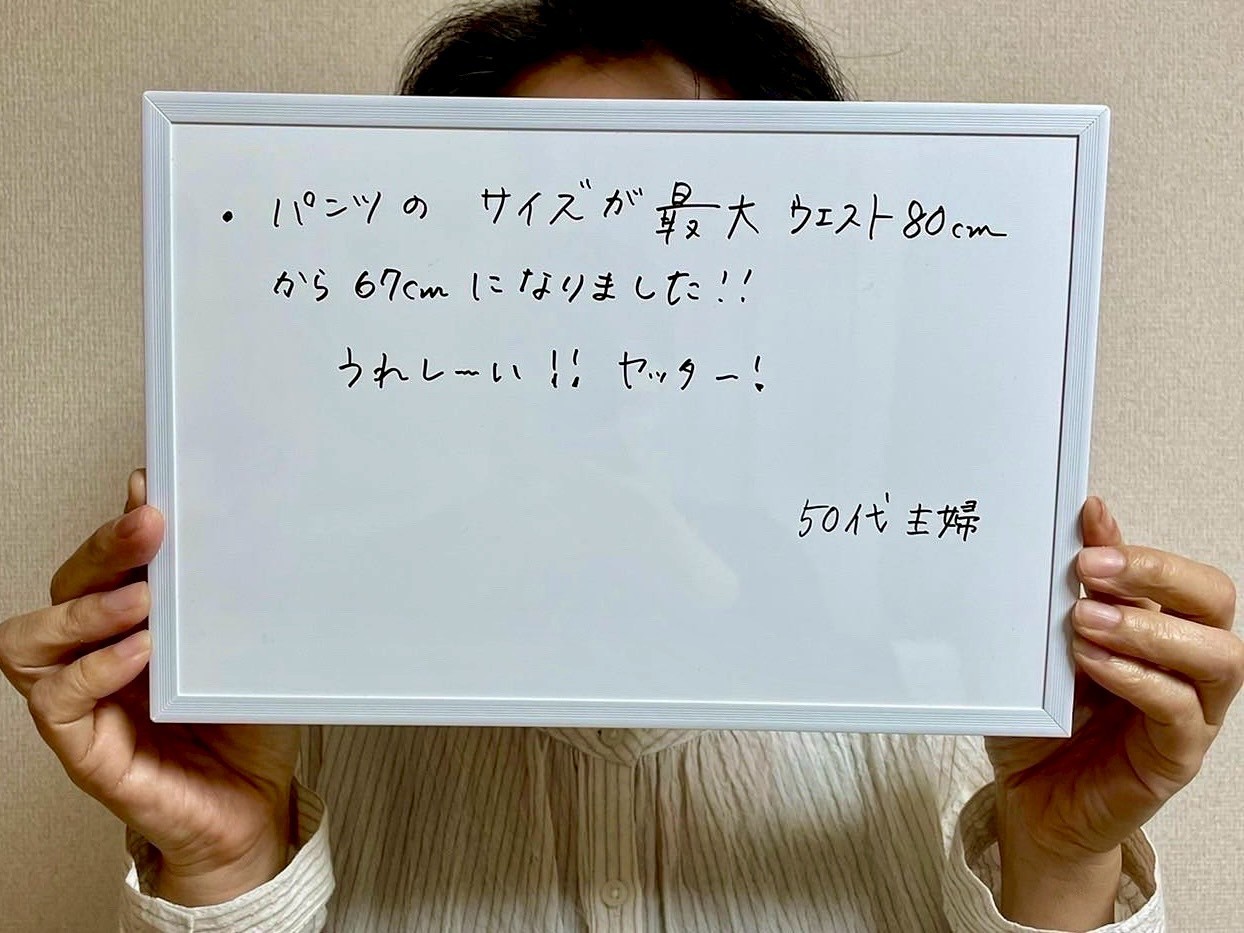 ・パンツの サイズが最大 ウエスト80cm
から 67cm になりました!!
うれしーい!! ヤッター!
50代 主婦